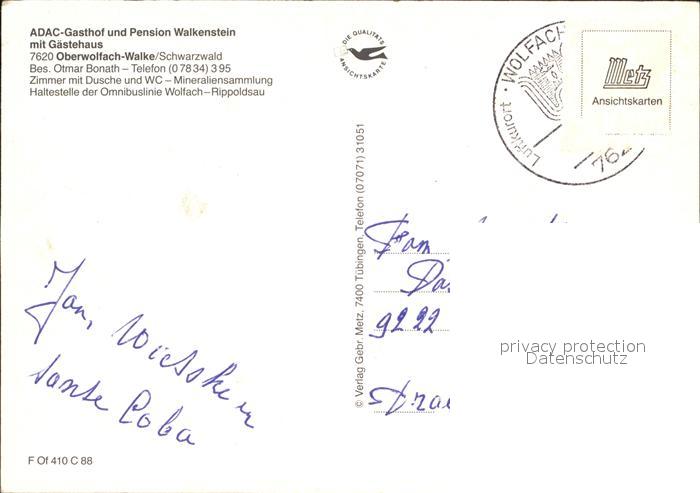 ADAC-Gasthof und Pension Walkenstein
mit Gästehaus
7620 Oberwolfach-Walke/Schwarzwald
Bes. Otmar Bonath – Telefon (0 78 34) 3 95
Zimmer mit Dusche und WC – Mineraliensammlung
Haltestelle der Omnibuslinie Wolfach–Rippoldsau
DIE QUALITÄTS
ANSICHTSKARTE
Luftkurort · WOLFACH
762
Metz
Ansichtskarten
© Verlag Gebr. Metz, 7400 Tübingen, Telefon (07071) 31051
Fam
9222
privacy protection
Datenschutz
Fam,
Tante
F Of 410 C 88